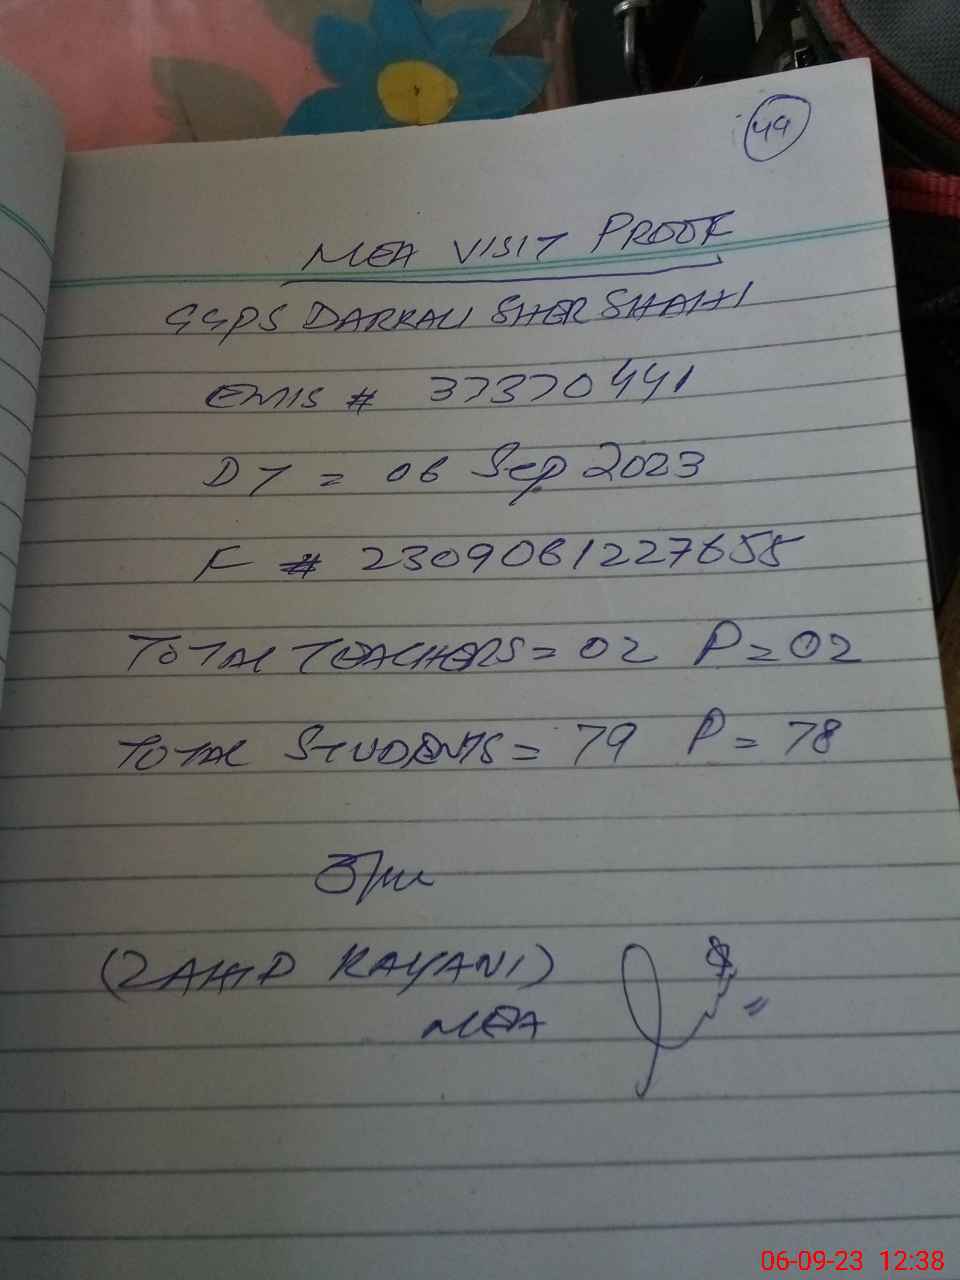 49
MEA VISIT PROOF
GGPS DARKALI SHER SHAHI
EMIS # 37370441
DT = 06 Sep 2023
F # 2309061227655
TOTAL TEACHERS = 02 P = 02
TOTAL STUDENTS = 79 P = 78
(ZAHID KAYANI)
MEA
06-09-23 12:38